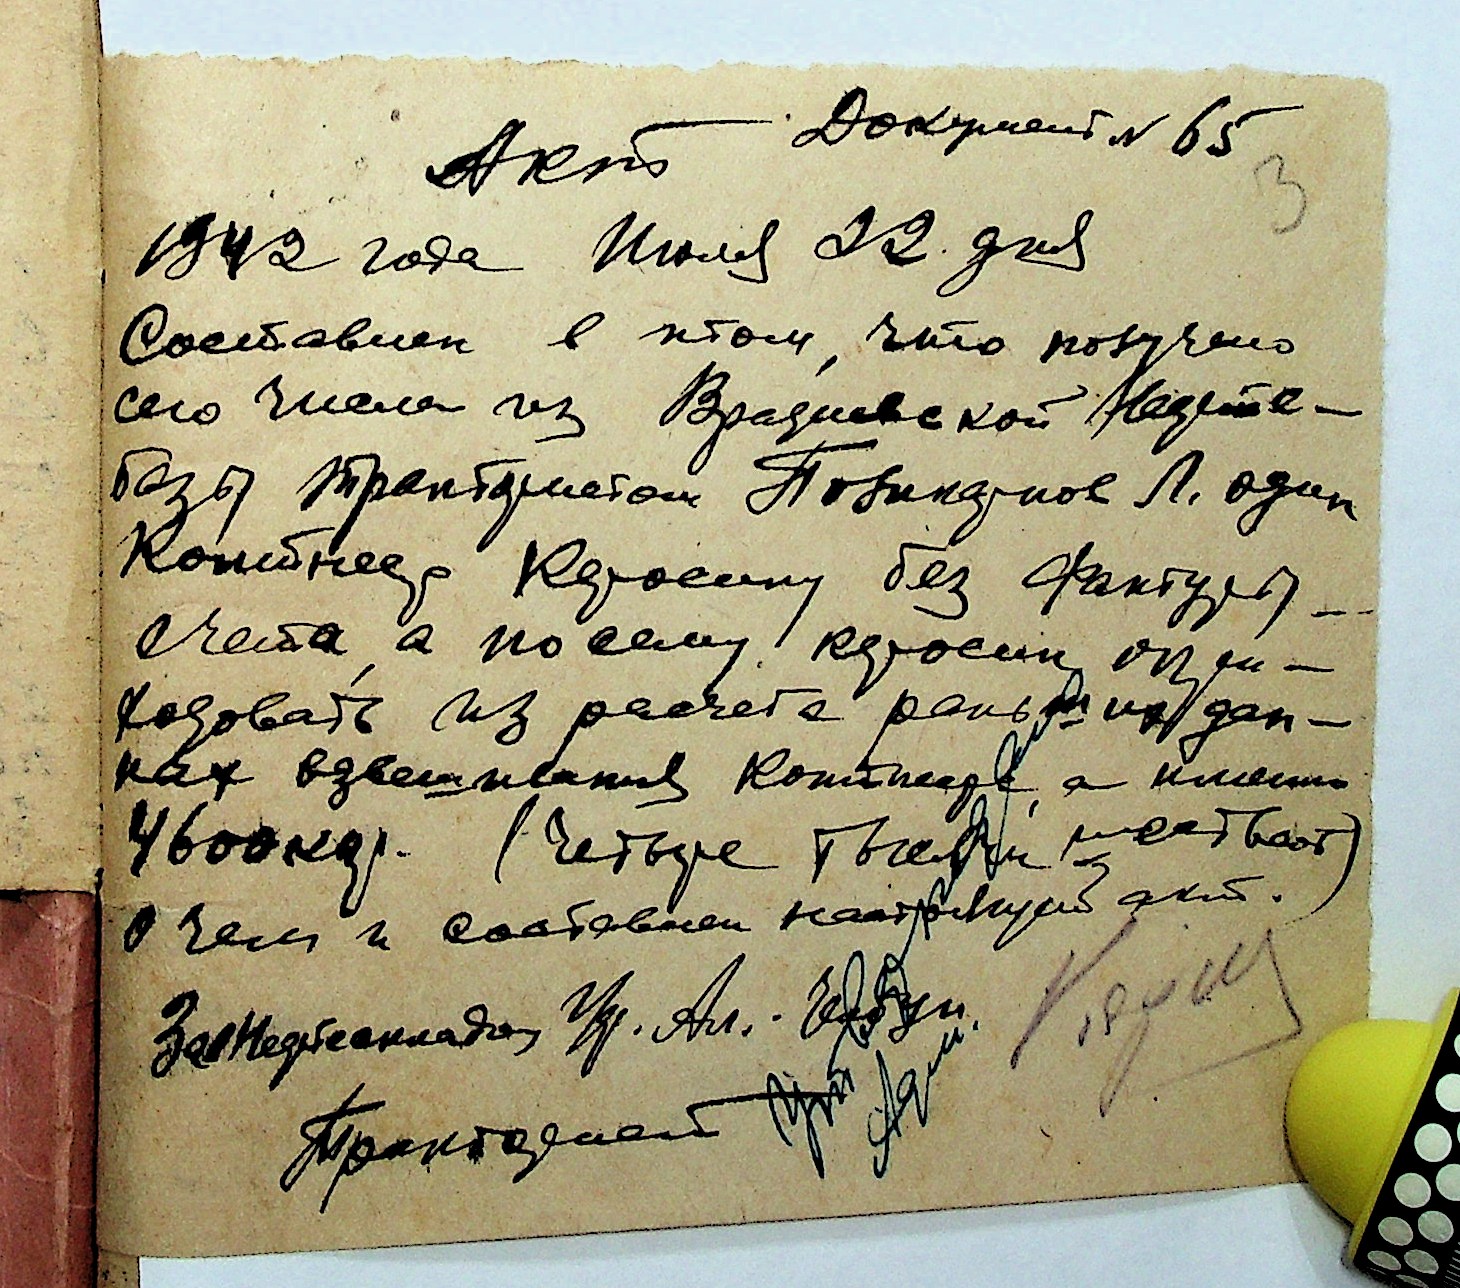 Документ № 65
Акт
3
1942 года Июля 22 дня
Составлен в том, что получено
сего числа из Врадиевской Нафта-
базы трактористом Л. один
Контнер Керосину без Фактуры
счета, а посему керосин оприт-
ходовать из расчета раньших дан-
ных взвешивания контнера, а именно
4600 кгр. (Четыре тысячи шестьсот)
о чем и составлен настоящий акт.
Зав Нефтескладом
Тракторист